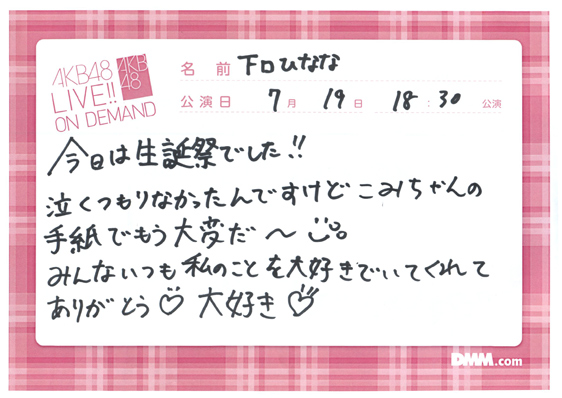 AKB48
LIVE!!
ON DEMAND
AKB
48
名 前 下口ひなな
公演日 7月 19日 18:30 公演
今日は生誕祭でした!!
泣くつもりなかったんですけど こみちゃんの
手紙でもう大変だ〜
みんないつも私のことを大好きでいてくれて
ありがとう♡ 大好き♡
DMM.com